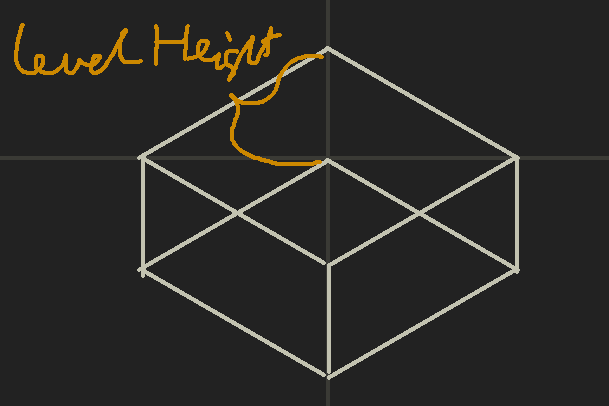 Level Height